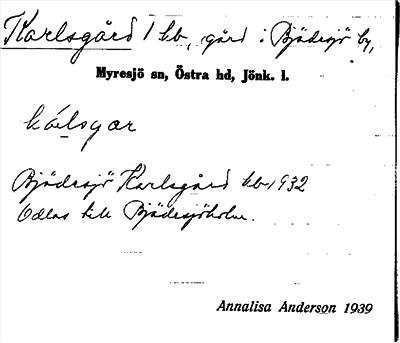 Karlsgård 1 kb, gård i Bjädesjö by,
Myresjö sn, Östra hd, Jönk. l.
kálsgar
Bjädesjö Karlsgård kb 1932
Odlas till Bjädesjöholm.
Annalisa Anderson 1939